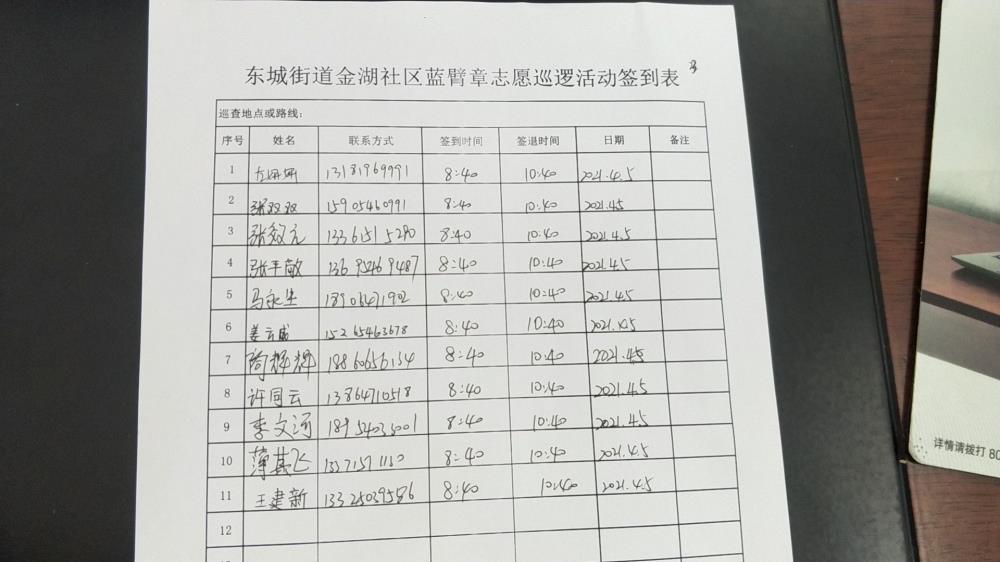 东城街道金湖社区蓝臂章志愿巡逻活动签到表 3
巡查地点或路线：
序号 姓名 联系方式 签到时间 签退时间 日期 备注
1 13181969991 8:40 10:40 2021.4.5
2 张双双 15905460991 8:40 10:40 2021.4.5
3 张效元 13361515280 8:40 10:40 2021.4.5
4 张丰敏 13695469487 8:40 10:40 2021.4.5
5 马永生 18906471902 8:40 10:40 2021.4.5
6 姜云成 15265463678 8:40 10:40 2021.4.5
7 尚辉辉 18860656134 8:40 10:40 2021.4.5
8 许同云 13864710518 8:40 10:40 2021.4.5
9 李文河 18954035001 8:40 10:40 2021.4.5
10 薄其飞 13371571130 8:40 10:40 2021.4.5
11 王建新 13325039586 8:40 10:40 2021.4.5
12
详情请拨打 80